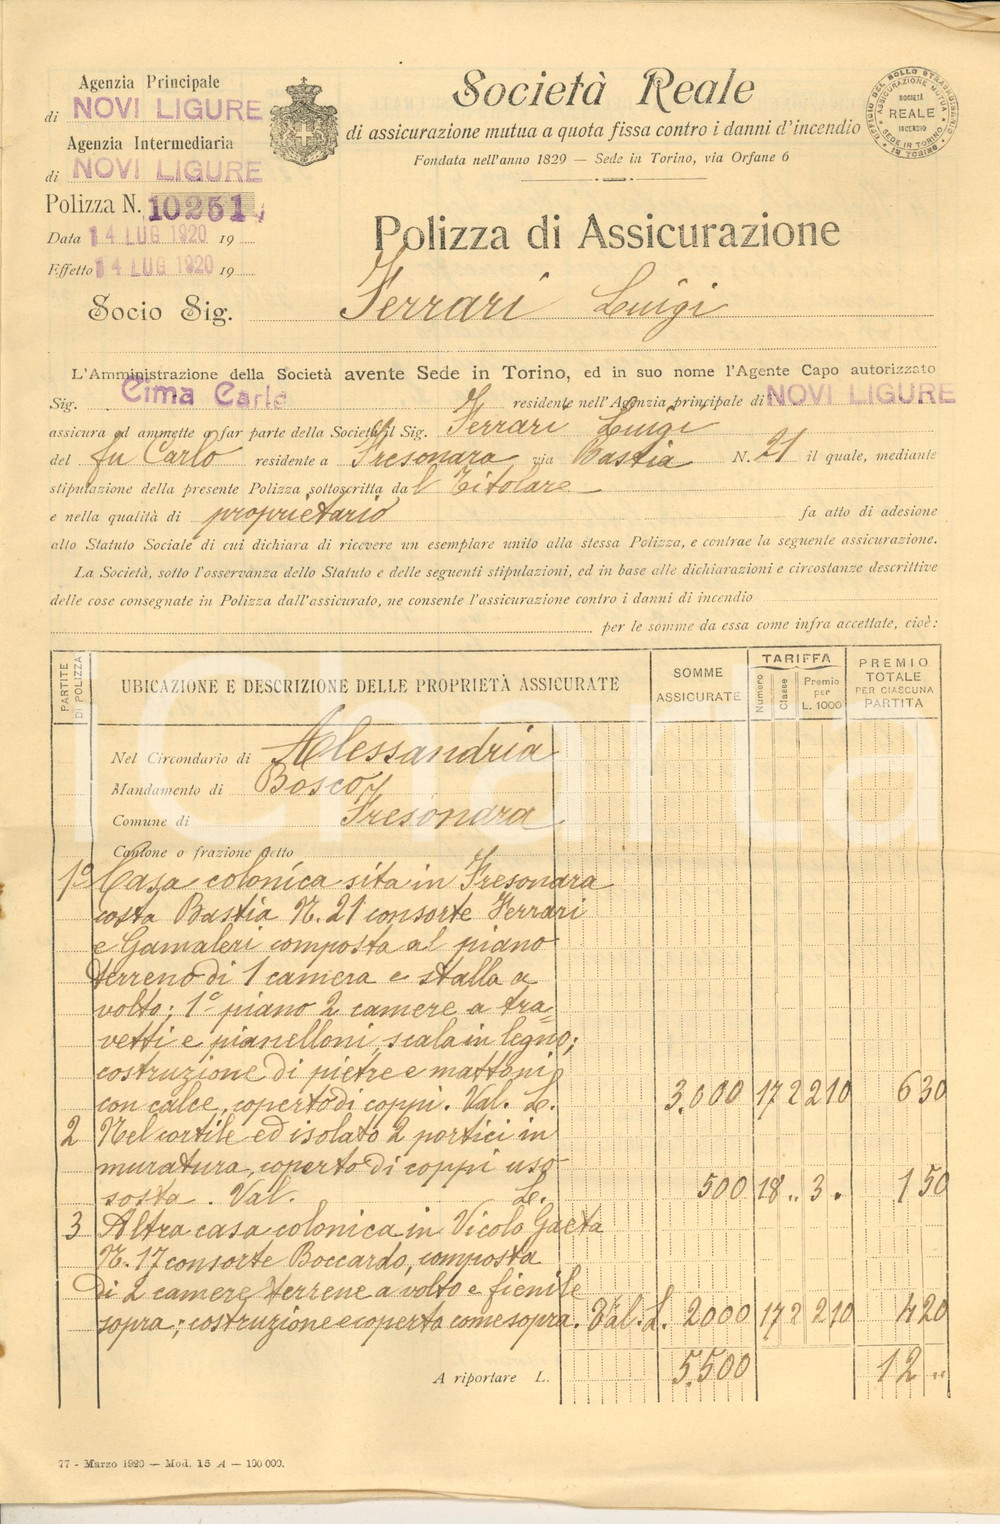 Agenzia Principale
di NOVI LIGURE
Agenzia Intermediaria
di NOVI LIGURE
Polizza N. 10251
Data 14 LUG 1920 19
Effetto 14 LUG 1920 19
Società Reale
di assicurazione mutua a quota fissa contro i danni d'incendio
Fondata nell'anno 1829 — Sede in Torino, via Orfane 6
UFFICIO DEL BOLLO STRAORDINARIO IN TORINO
ASSICURAZIONE MUTUA
SOCIETÀ
REALE
INCENDIO
SEDE IN TORINO
Polizza di Assicurazione
Socio Sig. Ferrari Luigi
L'Amministrazione della Società avente Sede in Torino, ed in suo nome l'Agente Capo autorizzato
Sig. Cima Carlo residente nell'Agenzia principale di NOVI LIGURE
assicura ed ammette a far parte della Società il Sig. Ferrari Luigi
del fu Carlo residente a Fresonara via Bastia N. 21 il quale, mediante
stipulazione della presente Polizza sottoscritta da l Titolare
e nella qualità di proprietario fa atto di adesione
allo Statuto Sociale di cui dichiara di ricevere un esemplare unito alla stessa Polizza, e contrae la seguente assicurazione.
La Società, sotto l'osservanza dello Statuto e delle seguenti stipulazioni, ed in base alle dichiarazioni e circostanze descrittive
delle cose consegnate in Polizza dall'assicurato, ne consente l'assicurazione contro i danni di incendio
per le somme da essa come infra accettate, cioè:
PARTITE DI POLIZZA
UBICAZIONE E DESCRIZIONE DELLE PROPRIETÀ ASSICURATE
SOMME ASSICURATE
TARIFFA
Numero
Classe
Premio per L. 1000
PREMIO TOTALE PER CIASCUNA PARTITA
Nel Circondario di Alessandria
Mandamento di Bosco
Comune di Fresonara
Cantone o frazione detto
1° Casa colonica sita in Fresonara
costa Bastia N. 21 consorte Ferrari
e Gamaleri composta al piano
terreno di 1 camera e stalla a
volto; 1° piano 2 camere a tra=
vetti e pianelloni, scala in legno;
costruzione di pietre e mattoni
con calce, coperto di coppi. Val. L. 3.000 17 2 2 10 6 30
2 Nel cortile ed isolato 2 portici in
muratura, coperto di coppi uso
sosta. Val. L. 500 18 .. 3 . 1 50
3 Altra casa colonica in Vicolo Gaeta
N. 17 consorte Boccardo, composta
di 2 camere terrene a volto e fienile
sopra; costruzione e coperta come sopra. Val. L. 2000 17 2 2 10 4 20
A riportare L. 5.500 12 ..
77 - Marzo 1920 — Mod. 15 A — 100 000.